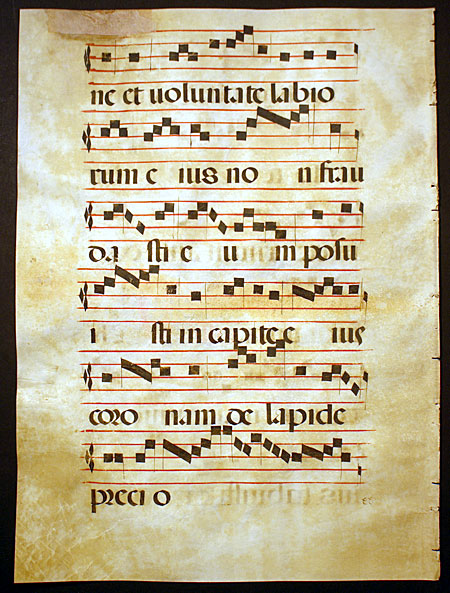 ne et voluntate labio
rum e ius no n frau
da sti e u m posu
i sti in capite e ius
coro nam de lapide
preci o